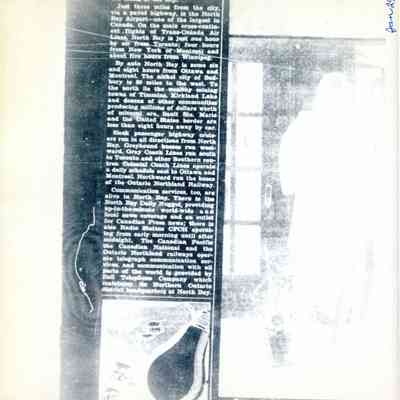 Just three miles from the city,
via a paved highway, is the North
Bay Airport—one of the largest in
Canada. On the main cross-contin-
ent flights of Trans-Canada Air
Lines, North Bay is just one hour
by air from Toronto; four hours
from New York or Montreal and
about five hours from Winnipeg.
By auto North Bay is some six
and eight hours from Ottawa and
Montreal. The nickel city of Sud-
bury is 80 miles to the west. To
the north lie the wealthy mining
towns of Timmins, Kirkland Lake
and dozens of other communities
producing millions of dollars worth
of mineral ore. Sault Ste. Marie
and the United States border are
less than eight hours away by car.
Sleek passenger highway cruis-
ers run in all directions from North
Bay. Greyhound busses run west-
ward, Gray Coach Lines run south
to Toronto and other Southern cen-
tres. Colonial Coach Lines operate
a daily schedule east to Ottawa and
Montreal. Northward run the buses
of the Ontario Northland Railway.
Communication services, too, are
alive in North Bay. There is the
North Bay Daily Nugget, providing
up-to-the-minute world-wide and
local news coverage and an outlet
for Canadian Press news; there is
also Radio Station CFCH operat-
ing from early morning until after
midnight. The Canadian Pacific
the Canadian National and the
Ontario Northland railways oper-
ate telegraph communication ser-
vices, and communication with all
parts of the world is provided by
Bell Telephone Company which
maintains its Northern Ontario
district headquarters at North Bay.